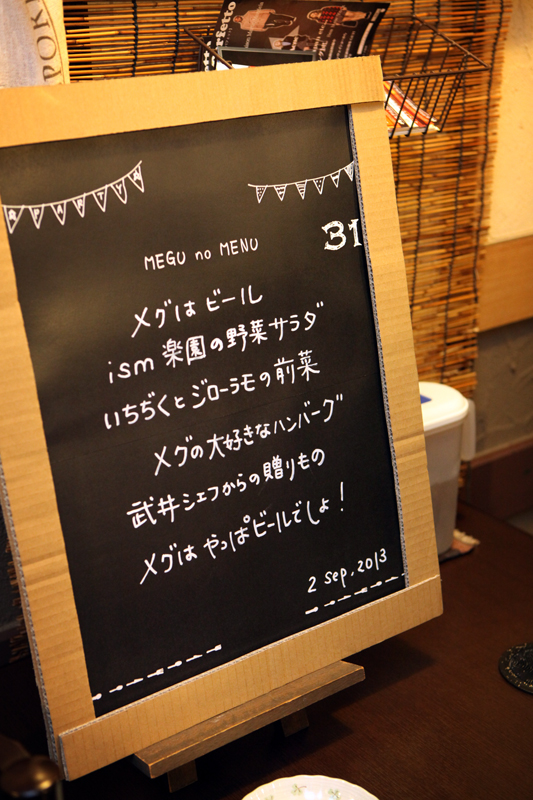 Perfetto
POKE
PARTY
31
MEGU no MENU
メグは ビール
ism 楽園の野菜サラダ
いちぢくとジローラモの前菜
メグの大好きなハンバーグ
武井シェフからの贈りもの
メグは やっぱビールでしょ！
2 Sep, 2013